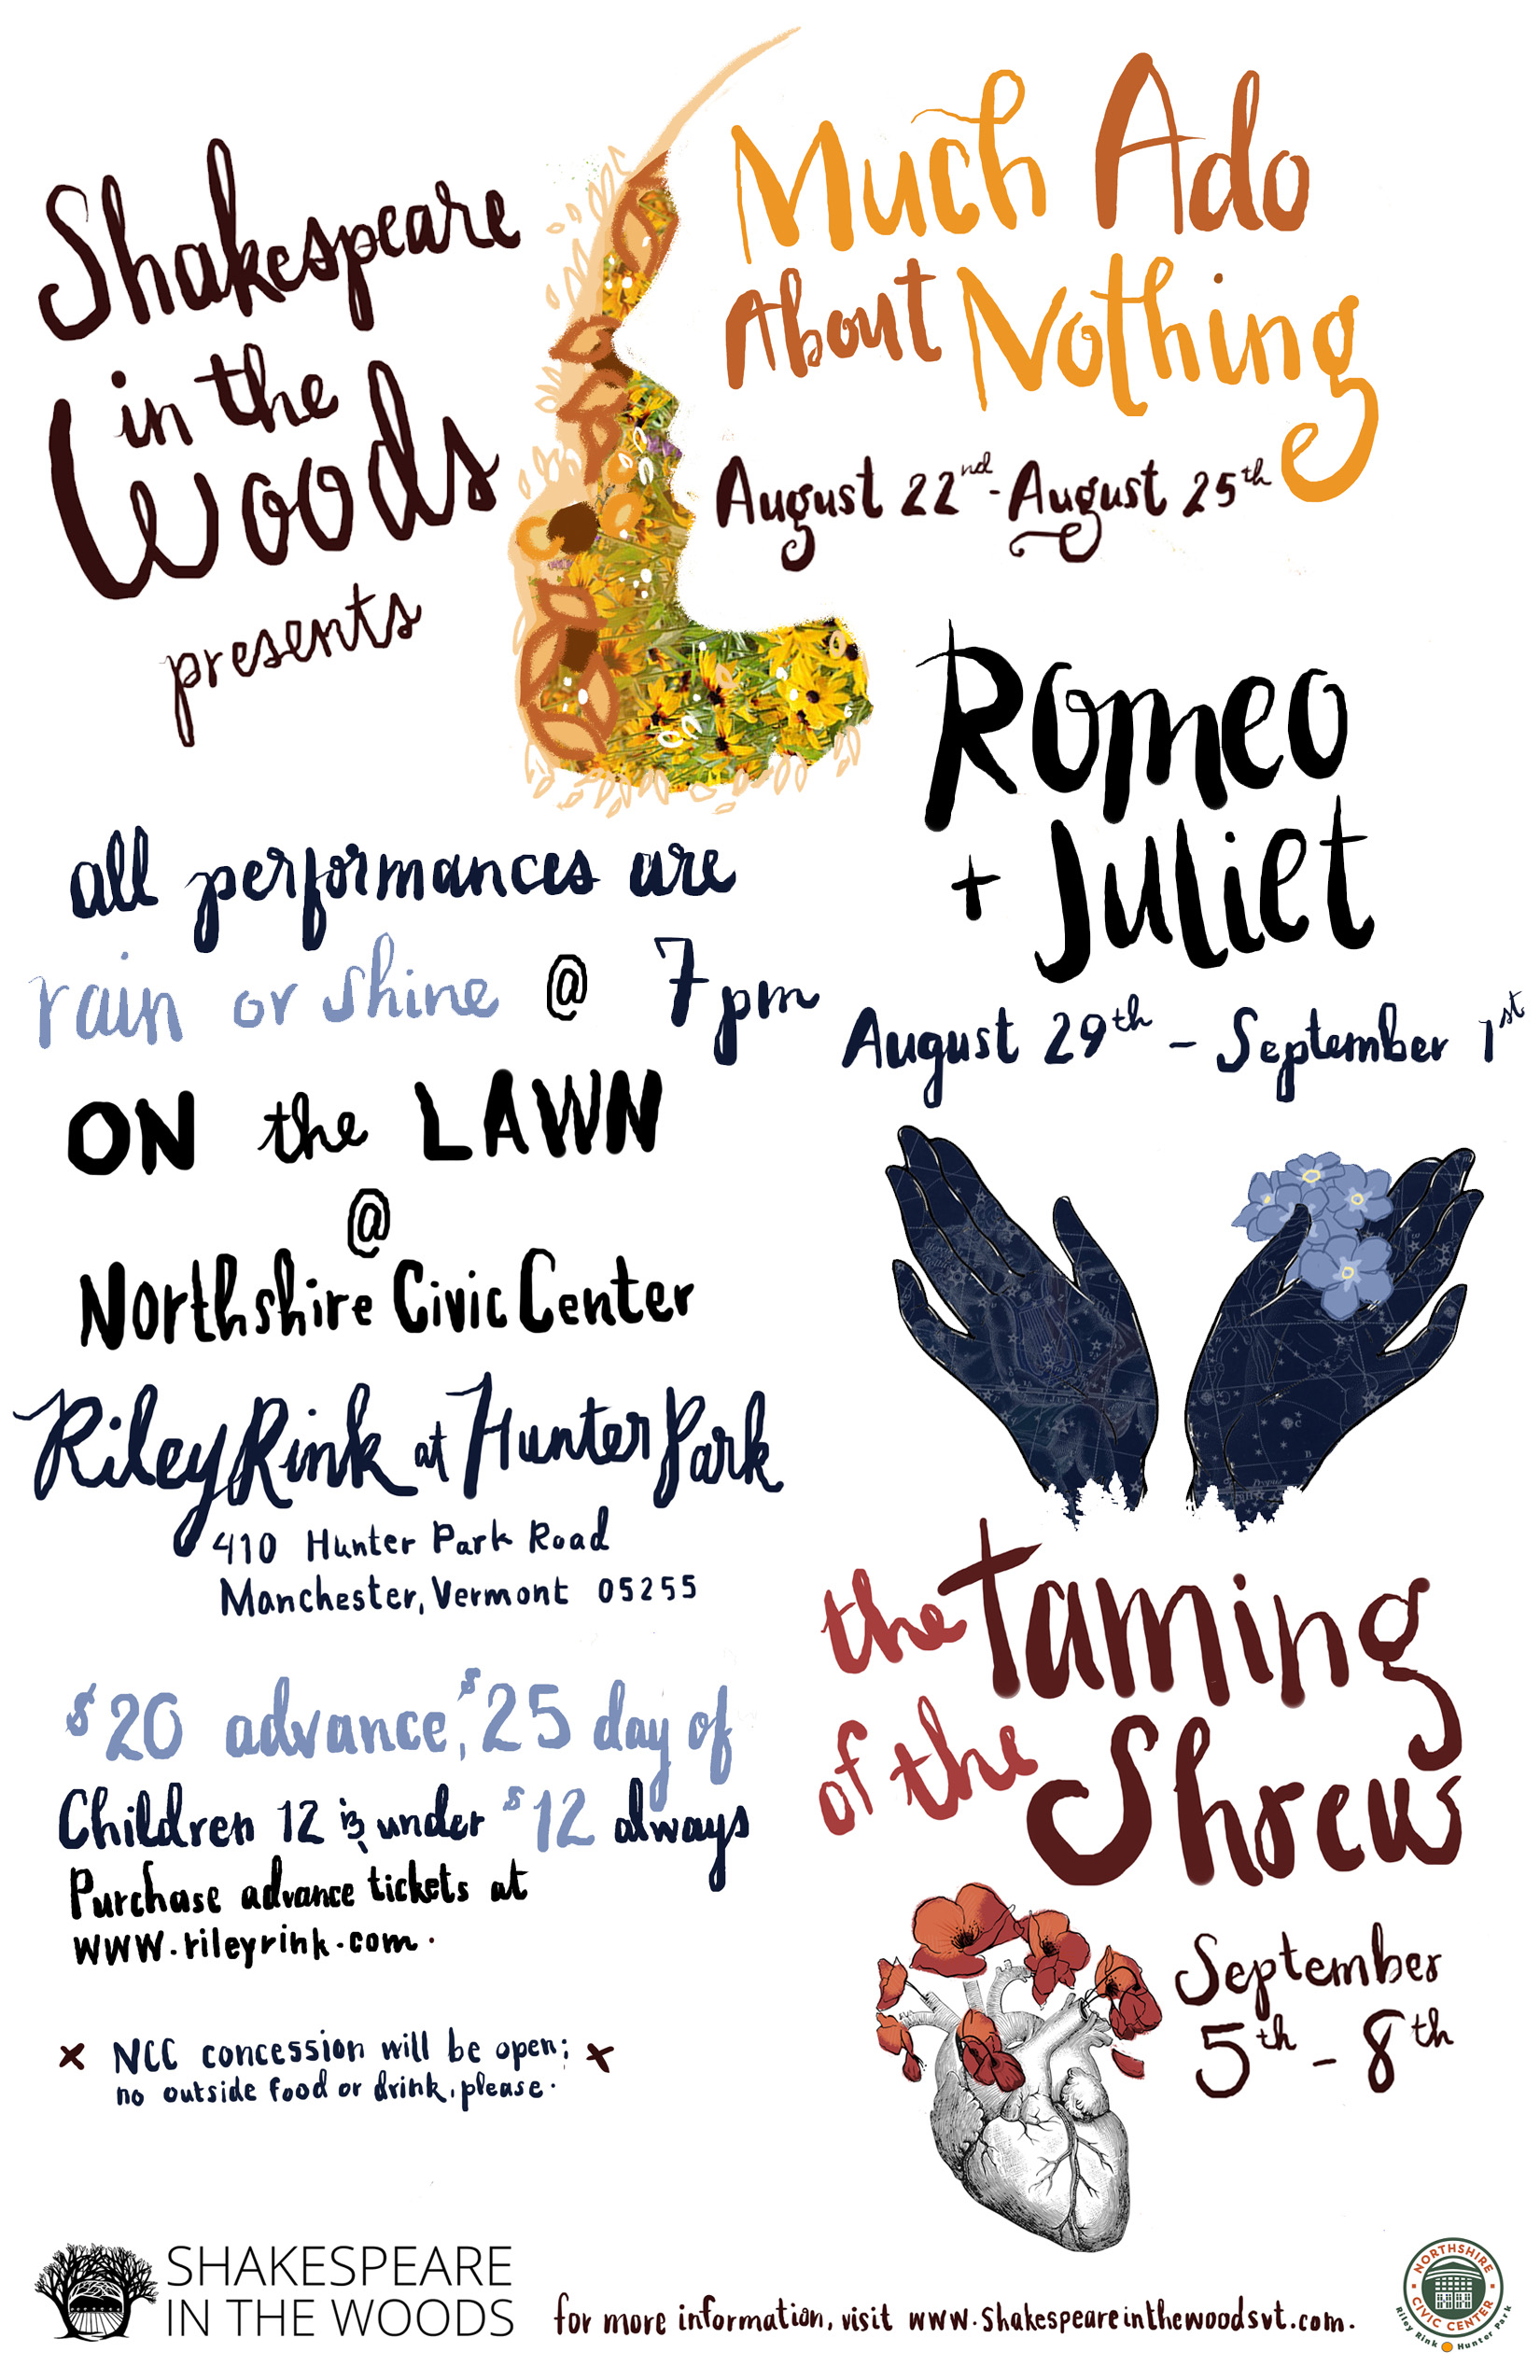 Shakespeare
in the
Woods
presents
Much Ado
About Nothing
August 22nd - August 25th
Romeo
+ Juliet
August 29th - September 1st
all performances are
rain or shine @ 7pm
ON the LAWN
@
Northshire Civic Center
Riley Rink at Hunter Park
410 Hunter Park Road
Manchester, Vermont 05255
the Taming
of the Shrew
September
5th - 8th
$20 advance, $25 day of
Children 12 & under $12 always
Purchase advance tickets at
www.rileyrink.com.
x NCC concession will be open; x
no outside food or drink, please.
SHAKESPEARE
IN THE WOODS
for more information, visit www.shakespeareinthewoodsvt.com.
NORTHSHIRE
CIVIC CENTER
Riley Rink Hunter Park